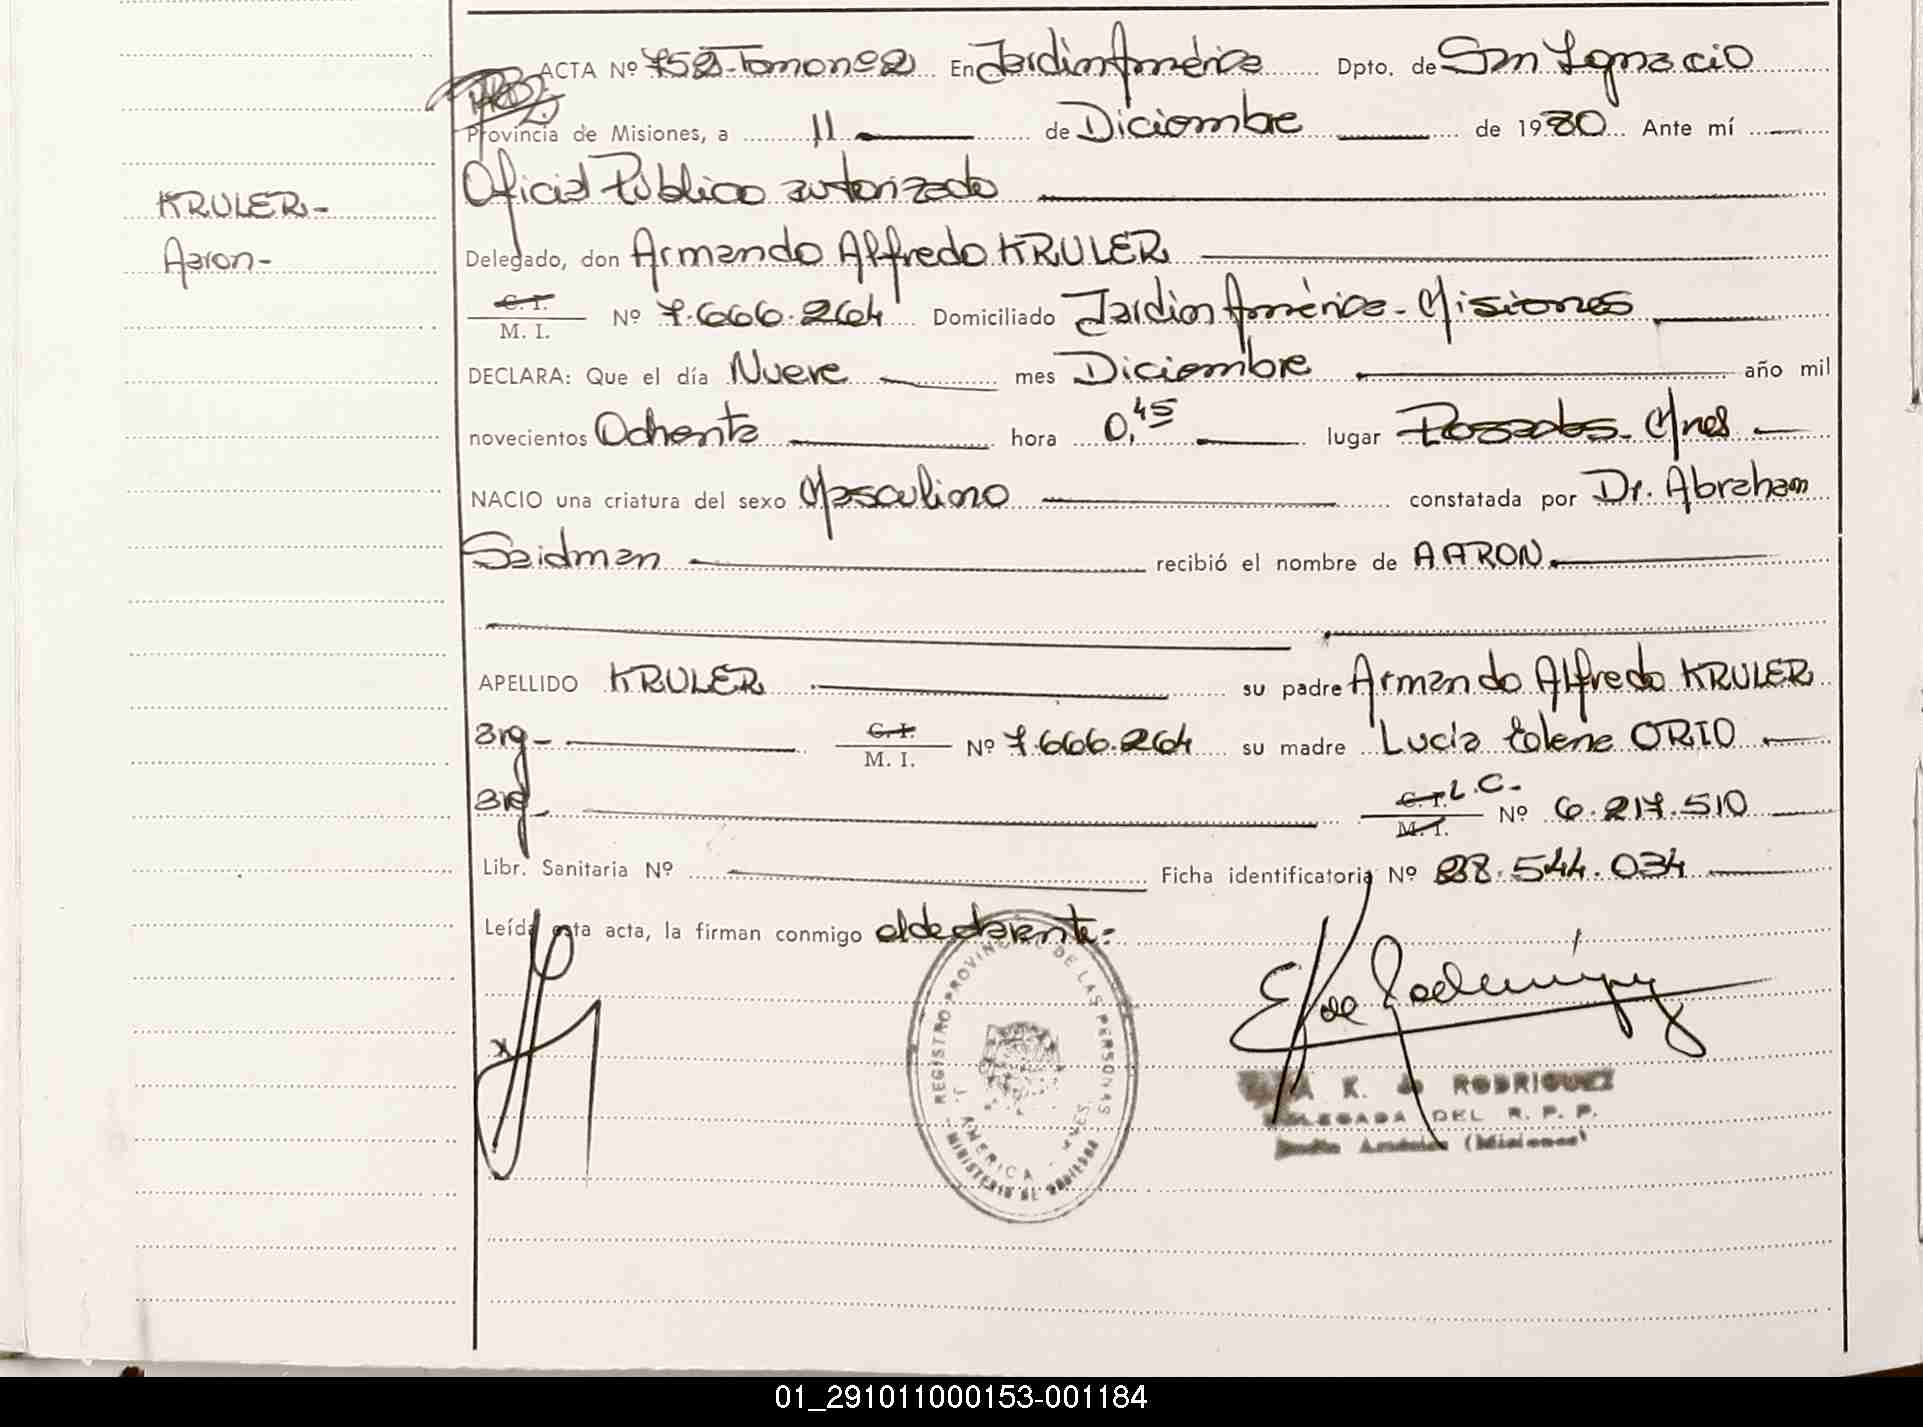 ACTA Nº 752-Tomo nº 2 En Jardin América Dpto. de San Ignacio
Provincia de Misiones, a 11 de Diciembre de 1980 Ante mí
Oficial Público autorizado
KRULER-
Aaron-
Delegado, don Armando Alfredo KRULER
C. I.
M. I. Nº 7.666.264 Domiciliado Jardin América - Misiones
DECLARA: Que el día Nueve mes Diciembre año mil
novecientos Ochenta hora 0,45 lugar Posadas - Mnes
NACIO una criatura del sexo Masculino constatada por Dr. Abraham
Saidman recibió el nombre de AARON
APELLIDO KRULER su padre Armando Alfredo KRULER
arg- C. I. M. I. Nº 7.666.264 su madre Lucia ORIO
arg- C. I. L.C.- M. I. Nº 6.217.510
Libr. Sanitaria Nº Ficha identificatoria Nº 28.544.034
Leída esta acta, la firman conmigo el declarante:
REGISTRO PROVINCIAL DE LAS PERSONAS
J. AMERICA - MNES.
MINISTERIO DE GOBIERNO
E K de Rodriguez
A K. de RODRIGUEZ
DELEGADA DEL R. P. P.
Jardín América (Misiones)
01_291011000153-001184